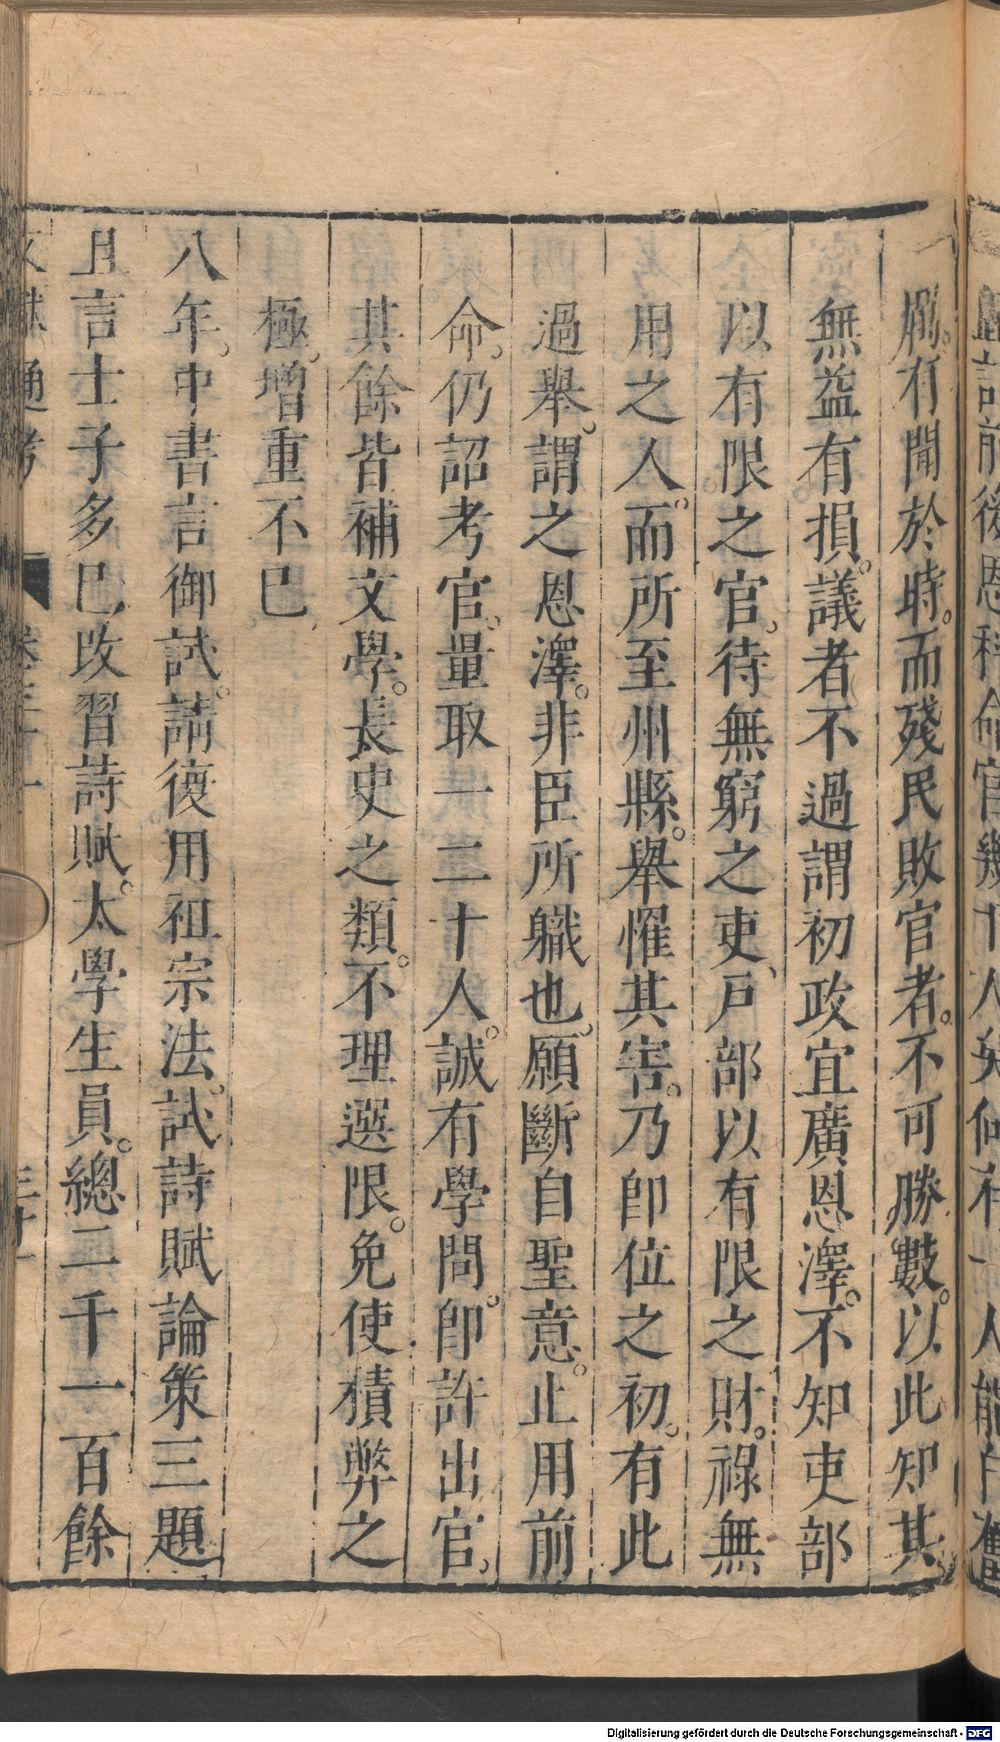 厲有聞於時。而殘民敗官者。不可勝數。以此知其
無益有損。議者不過謂初政宜廣恩澤。不知吏部
以有限之官。待無窮之吏、戸部以有限之財。祿無
用之人。而所至州縣。舉懼其害。乃卽位之初。有此
過舉。謂之恩澤。非臣所職也。願斷自聖意。止用前
命。仍詔考官。量取一二十人。誠有學問。卽許出官。
其餘皆補文學。長史之類。不理選限。免使積弊之
極。增重不已、
八年。中書言御試。請復用祖宗法。試詩賦論策三題
且言士子多已改習詩賦。太學生員。總二千一百餘
文獻通考 卷三十一
Digitalisierung gefördert durch die Deutsche Forschungsgemeinschaft - DFG